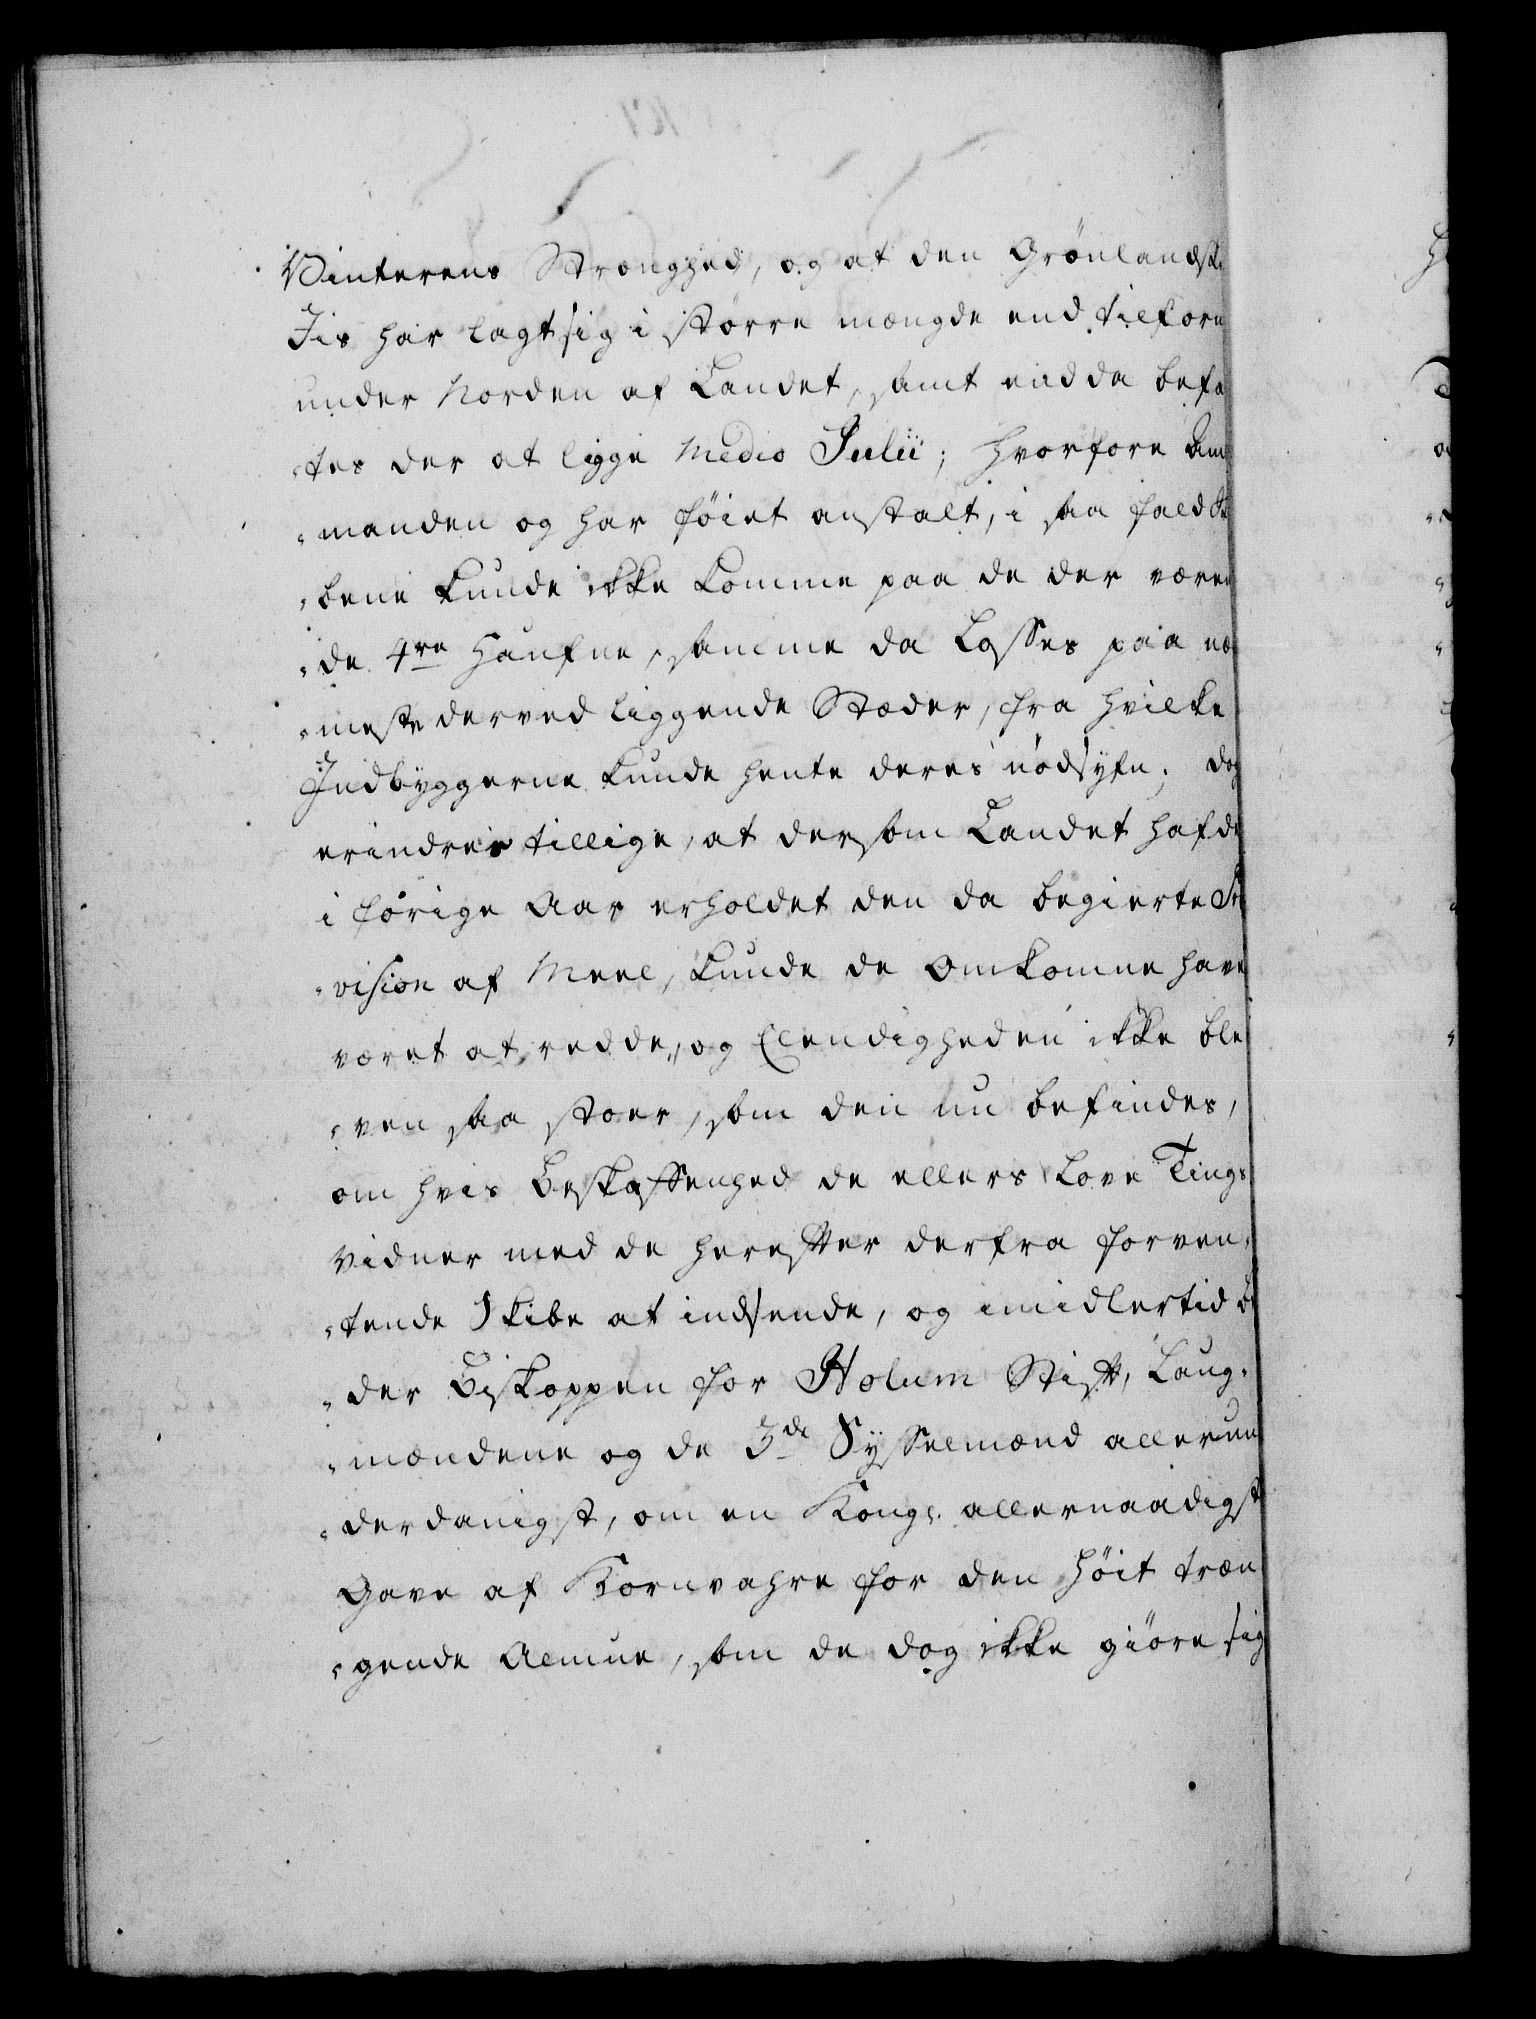 Vinterens Strænghed, og at den Grönlandske
Iis har lagt sig i större mængde end tilforn
under Norden af Landet, samt endda befa
-tes der at ligge Medio Julii; hvorfore Amt
-manden og har föiet anstalt, i saa fald Ski
-bene kunde ikke komme paa de der væren
-de 4re Haufne, samme da Losses paa næ
-meste derved liggende Stæder, fra hvilke
Indbyggerne kunde hente deres nödtyfn; dog
erindres tillige, at dersom Landet hafde
i forige Aar erholdet den da begierte Pro
-vision af Meel, kunde de Omkomne have
været at redde, og Elendigheden ikke ble
-ven saa stoer, som den nu befindes,
om hvis Beskaffenhed de ellers love Tings
Vidner med de herefter derfra forven-
-tende Skibe at indsende, og imidlertid be
-der Biskoppen for Holum Stift, Laug-
-mændene og de 3de Sysselmænd allerun
-derdanigst, om en Kongl. allernaadigst
Gave af Kornvahre for den höit træn
-gende Almue, som de dog ikke giöre sig